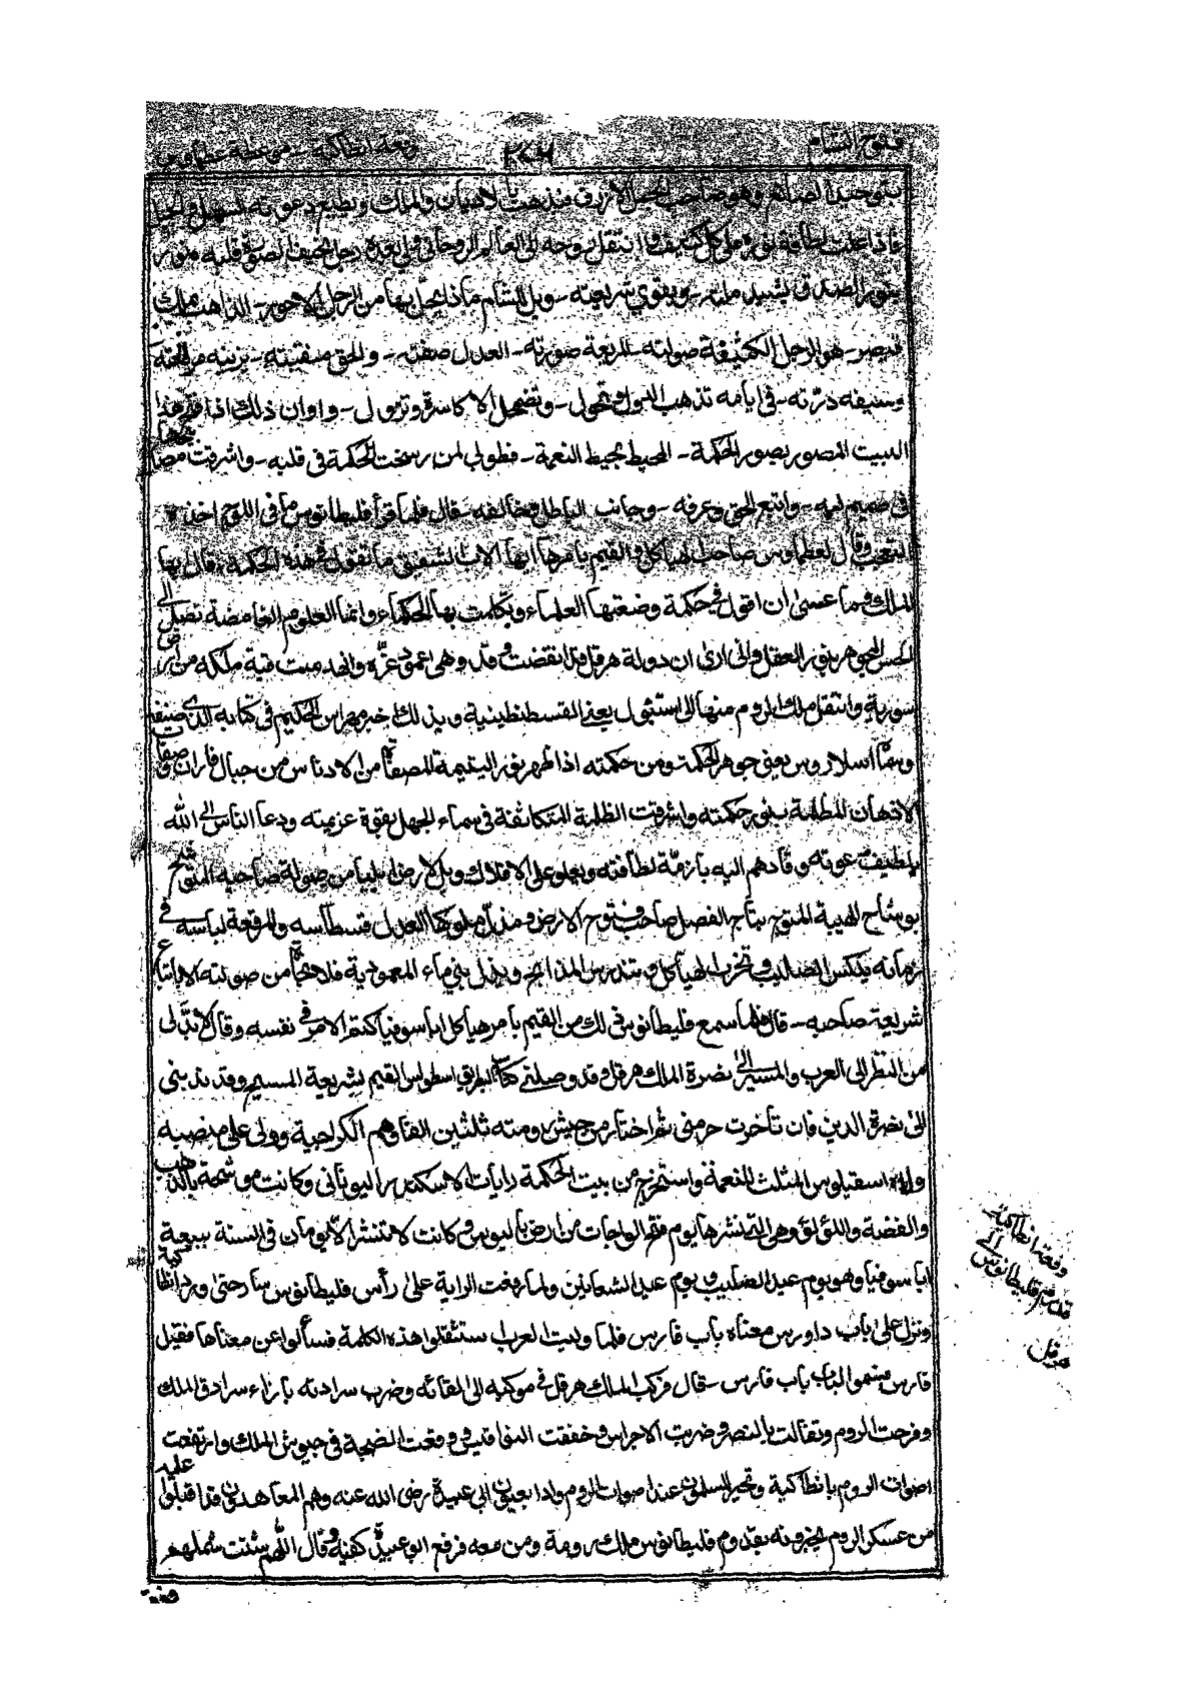 فتوح الشام
وقعة انطاكية
وهو صاحب الجمل الازرق والملك ويطيع دعوته السهل والجبل
على كل كثيف انتقل بروحه الى العالم الروحاني بعده رجل نحيف الصورة قلبه منور
بنور الصدق يشيد ملته - ويقوي شريعته - ويل للشام ماذا يحل بها من الرجل الاحور - الذاهب بملك
قيصر - هو الرجل الكثيفة صولته - المربعة صورته - العدل صفته - والحق منقبته - يزينه مرقعته
وسيفه درته - في ايامه تذهب الدول وتحول - وتضمحل الاكاسرة وتزول - واوان ذلك اذا فتح هذا
البيت المصور بصور الحكمة - المحيط بحيط النعمة - فطوبى لمن رسخت الحكمة في قلبه - واشرقت مصابيحها
في صميم لبه - واتبع الحق وعرفه - وجانب الباطل وخالفه - قال فلما قرأ فليطانوس ما في اللوح اخذه
التعجب وقال لعظماوس صاحب الهياكل والقيم بامرها ايها الاب الشفيق ما تقول في هذه الحكمة، قال ايها
الملك فما عسى ان اقول في حكمة وضعتها العلماء وتكلمت بها الحكماء وانما العلوم الغامضة تصل الى
الحس الجوهر بنور العقل واني ارى ان دولة هرقل قد انقضت وقل وهى عمود عزه وانهدمت قبة ملكه من ارض
سورية وانتقل ملك الروم منها الى استنبول يعني القسطنطينية وبذلك اخبر مهراس الحكيم في كتابه الذي صنفه
وسماه اسلاروس يعني جوهر الحكمة ومن حكمته اذا ظهر نور اليتيمة المصفاة من الادناس من جبال فاران وصفات
الاذهان المظلمة بنور حكمته واشرقت الظلمة المتكاثفة في سماء الجهل بقوة عزيمته ودعا الناس الى الله
بلطيف دعوته وقادهم اليه بازمة لطافته ويعلو على الافلاك ويل لارض ايليا من صولة صاحبه المتوشح
بوشاح الهيبة المتوج بتاج الفضل صاحب فتوح الارض ومذل ملوكها العدل قسطاسه والمرقعة لباسه في
زمانه ينكس الصليب وتخرب الهياكل وتندرس المذابح ويذل بني ماء المعمودية فلا نجاة من صولته الا باتباع
شريعة صاحبه - قال فلما سمع فليطانوس ذلك من القيم بامر هياكل اياسوفيا كتم الامر في نفسه وقال لا بد لي
من النظر الى العرب والمسير الى نصرة الملك هرقل وقد وصلني كتاب البطريق اسطواس القيم بشريعة المسيح وقد ندبني
الى نصرة الدين فان تأخرت حرمني ثم اختار من جيش رومته ثلثين الفا وهم الكراجية وولى على منصبه
ولده اسقيلوس المثلث النعمة واستخرج من بيت الحكمة رايات الاسكندر اليوناني وكانت موشحة بالذهب
والفضة واللؤلؤ وهي التي نشرها يوم فتح الواحات من ارض باليوس وكانت لا تنشر الا يومان في السنة ببيعة
اياسوفيا وهو يوم عيد الصليب ويوم عيد الشعانين ولما رفعت الراية على رأس فليطانوس سار حتى ورد انطاكية
ونزل على باب داورس معناه باب فارس فلما وليت العرب ستثقلوا هذه الكلمة فسألوا عن معناها فقيل
فارس فسموا الباب باب فارس - قال فركب الملك هرقل في موكبه الى لقائه وضرب سرادقه بازاء سرادق الملك
وفرحت الروم وتفالت بالنصر وضربت الاجراس وخفقت النواقيس ووقعت الضجة في جيوش الملك وارتفعت
اصوات الروم بانطاكية وتحير المسلمون عند اصوات الروم واذا بعيون ابي عبيدة رضى الله عنه وهم المعاهدون قد اقبلوا عليه
من عسكر الروم يخبرونه بقدوم فليطانوس ملك رومة ومن معه فرفع ابو عبيدة كفيه وقال اللهم شتت شملهم
وقعة انطاكية
قدوم فليطانوس الى
هرقل